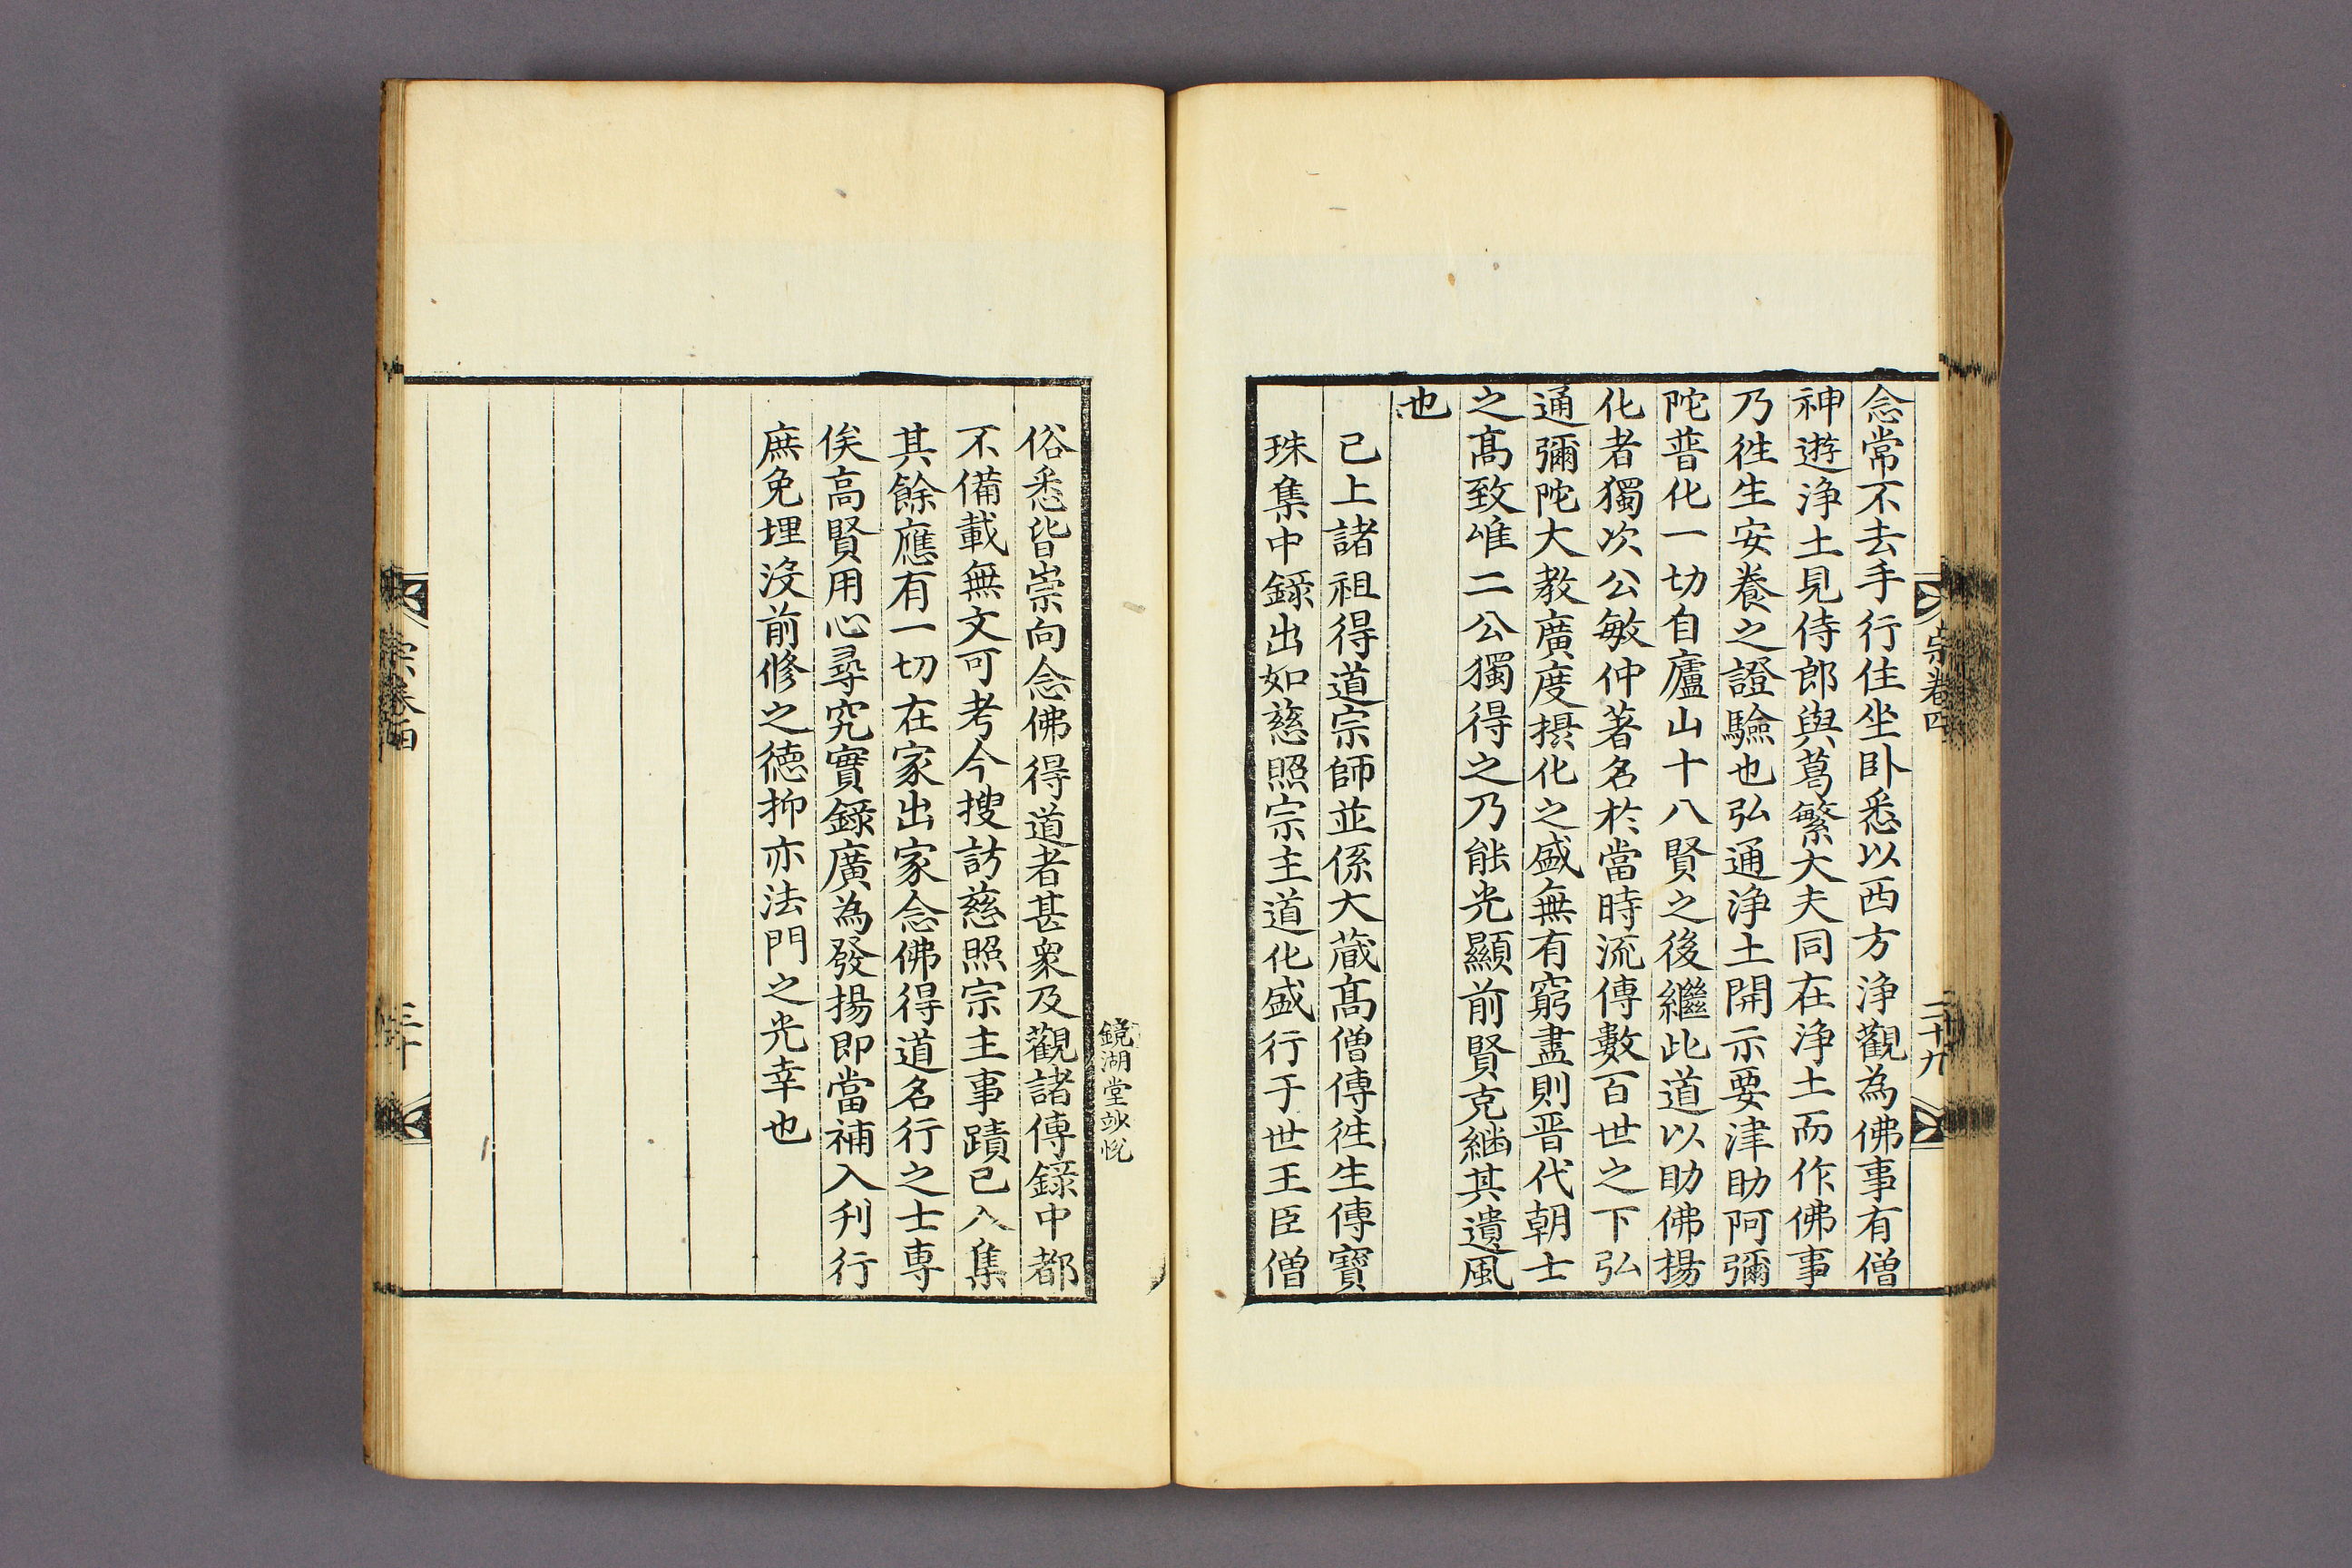 念常不去手行住坐卧悉以西方淨觀為佛事有僧
神遊淨土見侍郎與葛繁大夫同在淨土而作佛事
乃徃生安養之證驗也弘通淨土開示要津助阿彌
陀普化一切自廬山十八賢之後繼此道以助佛揚
化者獨次公敏仲著名於當時流傳數百世之下弘
通彌陀大教廣度攝化之盛無有窮盡則晋代朝士
之髙致唯二公獨得之乃能光顯前賢克繼其遺風
也
已上諸祖得道宗師並係大蔵髙僧傳徃生傳寳
珠集中録出如慈照宗主道化盛行于世王臣僧
宗卷四
二十九
俗悉皆崇向念佛得道者甚衆及觀諸傳録中都
不備載無文可考今搜訪慈照宗主事蹟已入集
其餘應有一切在家出家念佛得道名行之士専
俟高賢用心尋究實録廣為發揚即當補入刋行
庶免埋没前修之德抑亦法門之光幸也
鏡湖堂
宗卷四
三十